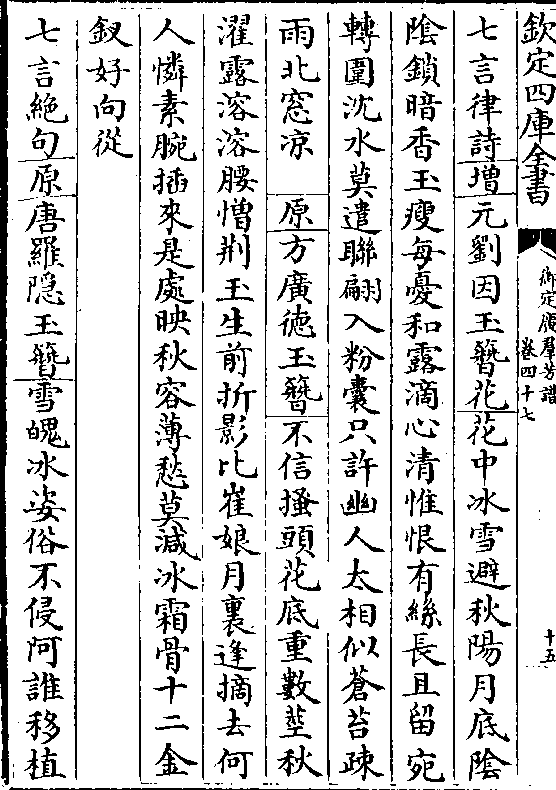 欽定四庫全書
御定廣羣芳譜
卷四十七
十五
七言律詩増元劉因玉簪花花中冰雪避秋陽月底陰
陰鎖暗香玉瘦每憂和露滴心清惟恨有絲長且留宛
轉圍沈水莫遣聯翩入粉囊只許幽人太相似蒼苔疎
雨北窓凉　原方廣徳玉簪不信搔頭花底重數莖秋
濯露溶溶腰憎荆玉生前折影比崔娘月裏逢摘去何
人憐素腕插來是處映秋容薄愁莫減冰霜骨十二金
釵好向從
七言絶句原唐羅隱玉簪雪魄冰姿俗不侵阿誰移植